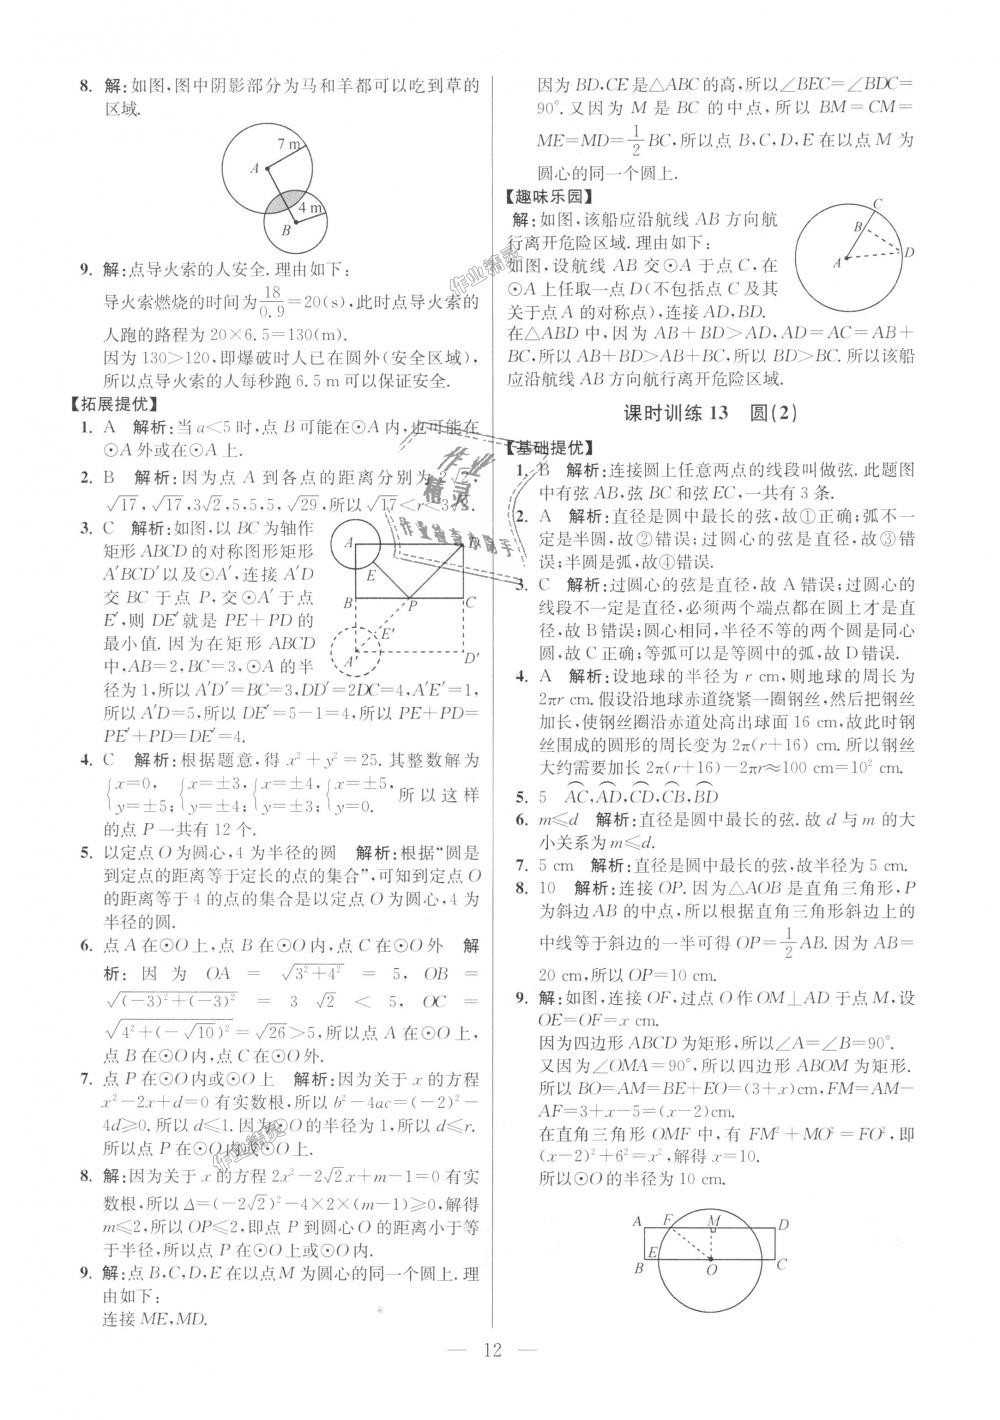 8. 解:如图,图中阴影部分为马和羊都可以吃到草的
区域.
7 m
A
4 m
B
9. 解:点导火索的人安全.理由如下:
导火索燃烧的时间为18/0.9=20(s),此时点导火索的
人跑的路程为20×6.5=130(m).
因为130>120,即爆破时人已在圆外(安全区域),
所以点导火索的人每秒跑6.5 m可以保证安全.
【拓展提优】
1. A 解析:当a<5时,点B可能在⊙A内,也可能在
⊙A外或在⊙A上.
2. B 解析:因为点A到各点的距离分别为3√2,
√17,√17,3√2,5,5,5,√29,所以√17<r<3√2.
3. C 解析:如图,以BC为轴作
矩形ABCD的对称图形矩形
A′BCD′以及⊙A′,连接A′D
交BC于点P,交⊙A′于点
E′,则DE′就是PE+PD的
最小值.因为在矩形ABCD
中,AB=2,BC=3,⊙A的半
径为1,所以A′D′=BC=3,DD′=2DC=4,A′E′=1,
所以A′D=5,所以DE′=5-1=4,所以PE+PD=
PE′+PD=DE′=4.
A
E
B
P
C
E′
A′
D′
4. C 解析:根据题意,得x²+y²=25.其整数解为
{x=0, {x=±3, {x=±4, {x=±5,
y=±5; y=±4; y=±3; y=0. 所以这样
的点P一共有12个.
5. 以定点O为圆心,4为半径的圆 解析:根据“圆是
到定点的距离等于定长的点的集合”,可知到定点O
的距离等于4的点的集合是以定点O为圆心,4为
半径的圆.
6. 点A在⊙O上,点B在⊙O内,点C在⊙O外 解
析:因为OA=√(3²+4²)=5,OB=
√((-3)²+(-3)²)=3√2<5,OC=
√(4²+(-√10)²)=√26>5,所以点A在⊙O上,
点B在⊙O内,点C在⊙O外.
7. 点P在⊙O内或⊙O上 解析:因为关于x的方程
x²-2x+d=0有实数根,所以b²-4ac=(-2)²-
4d≥0.所以d≤1.因为⊙O的半径为1,所以d≤r.
所以点P在⊙O内或⊙O上.
8. 解:因为关于x的方程2x²-2√2x+m-1=0有实
数根,所以Δ=(-2√2)²-4×2×(m-1)≥0,解得
m≤2,所以OP≤2,即点P到圆心O的距离小于等
于半径,所以点P在⊙O上或⊙O内.
9. 解:点B,C,D,E在以点M为圆心的同一个圆上.理
由如下:
连接ME,MD.
因为BD,CE是△ABC的高,所以∠BEC=∠BDC=
90°.又因为M是BC的中点,所以BM=CM=
ME=MD=1/2BC,所以点B,C,D,E在以点M为
圆心的同一个圆上.
【趣味乐园】
解:如图,该船应沿航线AB方向航
行离开危险区域.理由如下:
如图,设航线AB交⊙A于点C,在
⊙A上任取一点D(不包括点C及其
关于点A的对称点),连接AD,BD.
C
B
D
A
在△ABD中,因为AB+BD>AD,AD=AC=AB+
BC,所以AB+BD>AB+BC,所以BD>BC.所以该船
应沿航线AB方向航行离开危险区域.
课时训练13 圆(2)
【基础提优】
1. B 解析:连接圆上任意两点的线段叫做弦.此题图
中有弦AB,弦BC和弦EC,一共有3条.
2. A 解析:直径是圆中最长的弦,故①正确;弧不一
定是半圆,故②错误;过圆心的弦是直径,故③错
误;半圆是弧,故④错误.
3. C 解析:过圆心的弦是直径,故A错误;过圆心的
线段不一定是直径,必须两个端点都在圆上才是直
径,故B错误;圆心相同,半径不等的两个圆是同心
圆,故C正确;等弧可以是等圆中的弧,故D错误.
4. A 解析:设地球的半径为r cm,则地球的周长为
2πr cm.假设沿地球赤道绕紧一圈钢丝,然后把钢丝
加长,使钢丝圈沿赤道处高出球面16 cm,故此时钢
丝围成的圆形的周长变为2π(r+16) cm.所以钢丝
大约需要加长2π(r+16)-2πr≈100 cm=10² cm.
5. 5 A͡C,A͡D,C͡D,C͡B,B͡D
6. m≤d 解析:直径是圆中最长的弦.故d与m的大
小关系为m≤d.
7. 5 cm 解析:直径是圆中最长的弦,故半径为5 cm.
8. 10 解析:连接OP.因为△AOB是直角三角形,P
为斜边AB的中点,所以根据直角三角形斜边上的
中线等于斜边的一半可得OP=1/2AB.因为AB=
20 cm,所以OP=10 cm.
9. 解:如图,连接OF,过点O作OM⊥AD于点M,设
OE=OF=x cm.
因为四边形ABCD为矩形,所以∠A=∠B=90°.
又因为∠OMA=90°,所以四边形ABOM为矩形.
所以BO=AM=BE+EO=(3+x)cm,FM=AM-
AF=3+x-5=(x-2)cm.
在直角三角形OMF中,有FM²+MO²=FO²,即
(x-2)²+6²=x²,解得x=10.
所以⊙O的半径为10 cm.
A F M D
B E O C
12
作业精灵
作业精灵
作业
精灵
作业检查小助手